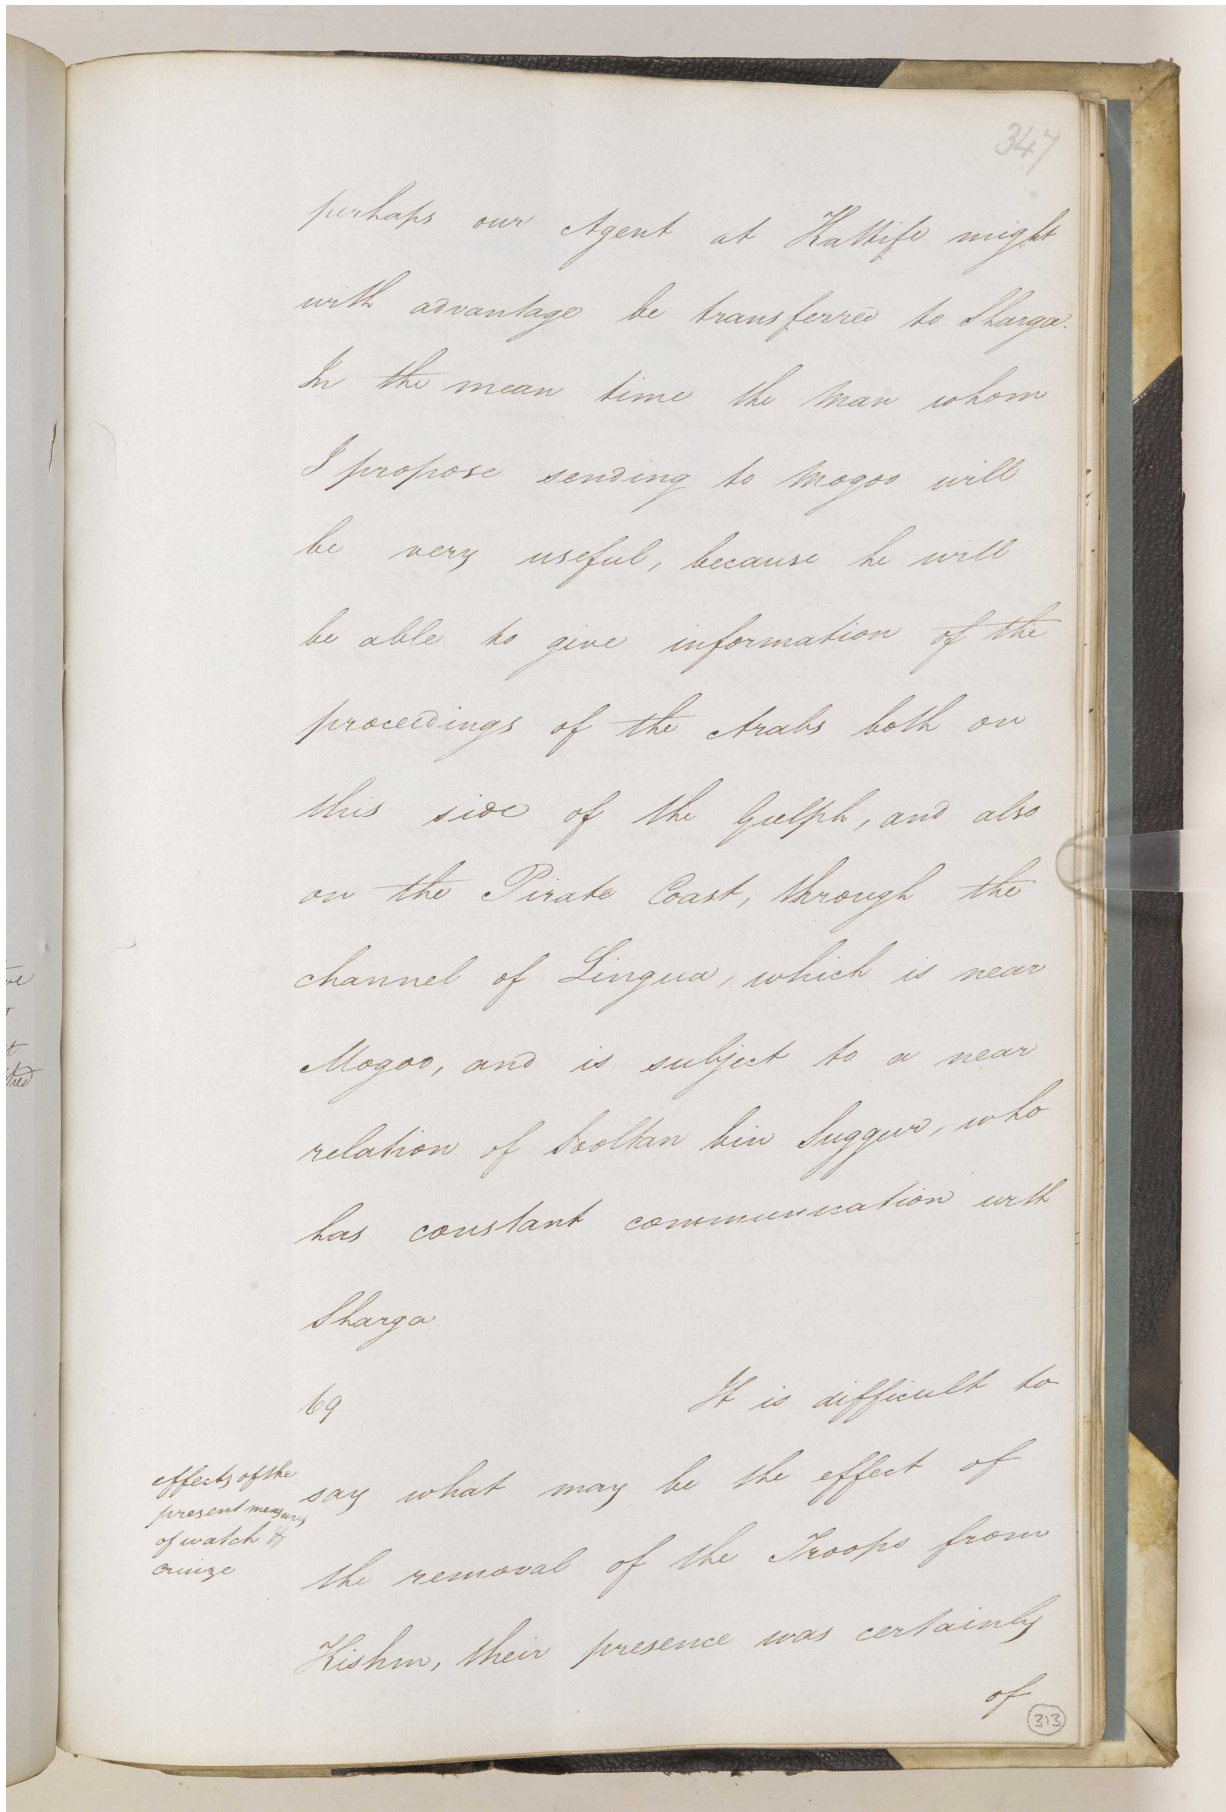 347
perhaps our Agent at Kattife might
with advantage be transferred to Sharga.
In the mean time the Man whom
I propose sending to Mogoo will
be very useful, because he will
be able to give information of the
proceedings of the Arabs both on
this side of the Gulph, and also
on the Pirate Coast, through the
channel of Lingua, which is near
Mogoo, and is subject to a near
relation of Sooltan bin Suggur, who
has constant communication with
Sharga
69 It is difficult to
effects of the
present measures
of watch &
cruize
say what may be the effect of
the removal of the Troops from
Kishm, their presence was certainly
of
313